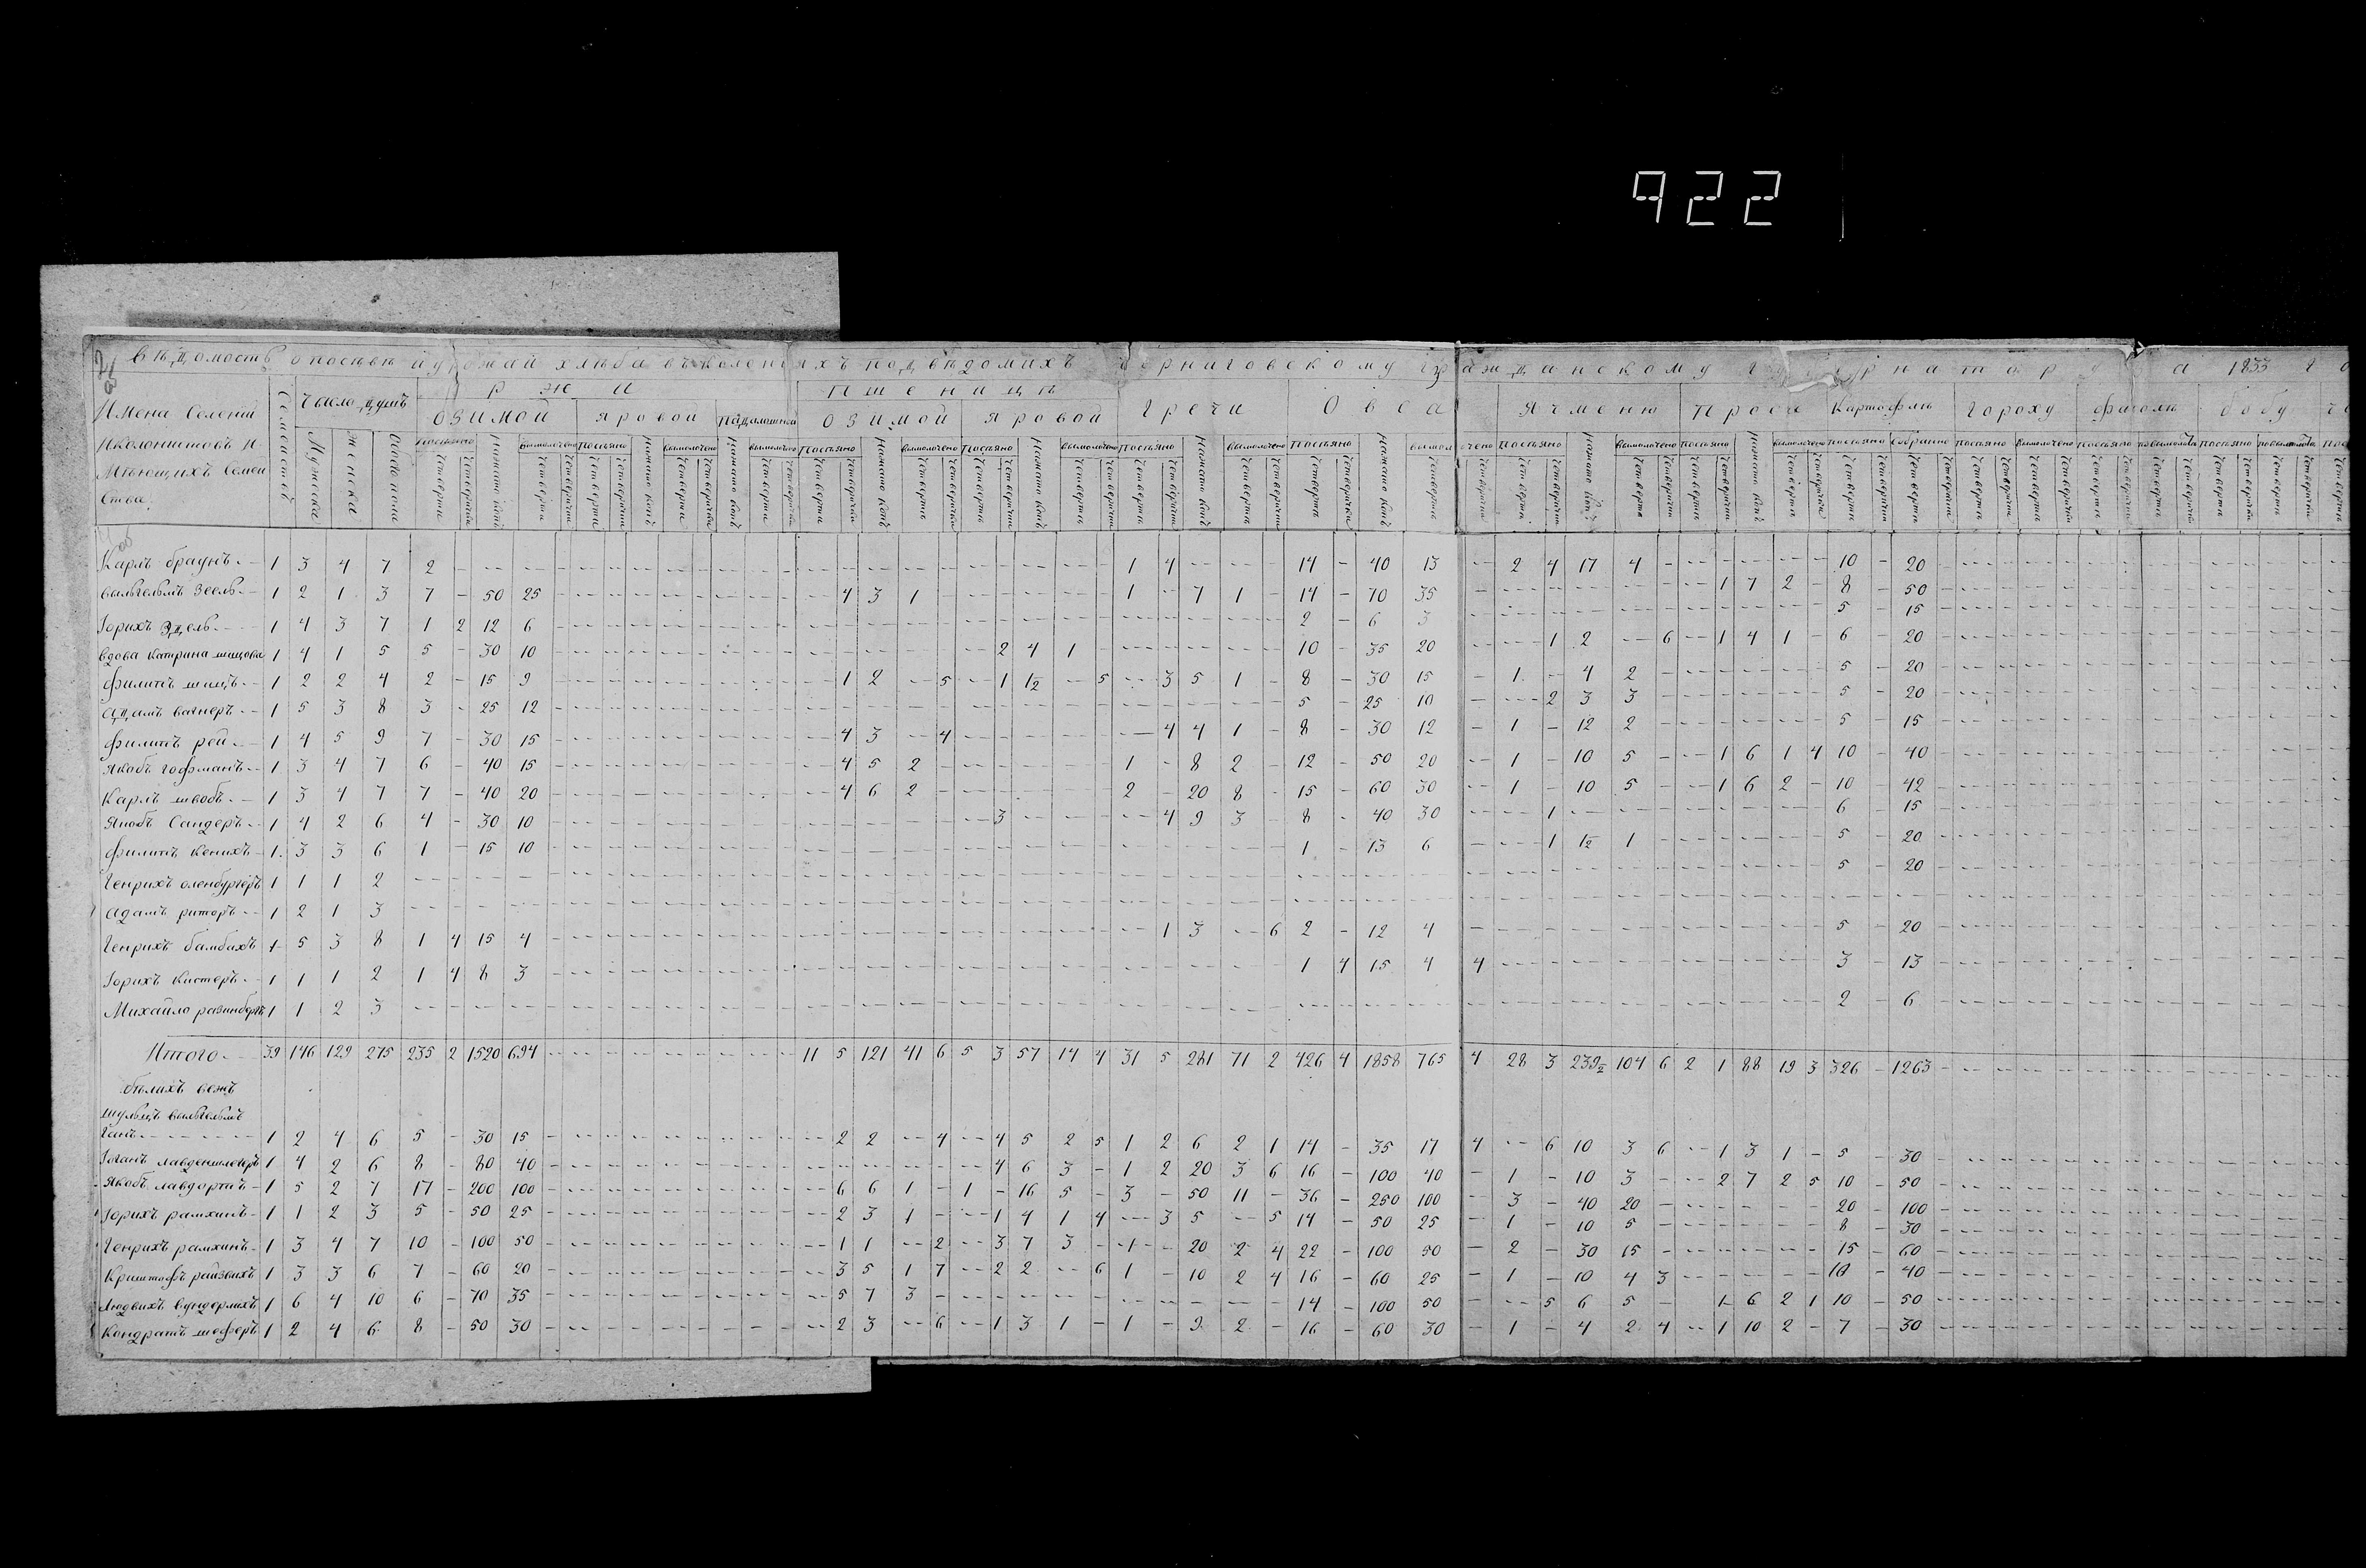 922
Вѣдомость о посѣвѣ и урожаи хлѣба въ колонияхъ подвѣдомихъ Черниговскому гражданскому губернатору за 1833 го
Имена Селений Иколонистовъ И Мѣющихъ Семейства
Семействъ
Число душъ
Мужеска
женска
Обоего пола
ржи
озимой
яровой
падалишной
пшеницы
озимой
яровой
гречи
Овса
Ячменю
Просо
Картофль
Гороху
фасоли
бобу
посѣяно
Нажато копъ
вымолочено
Собранно
Четверти
Четверички
Карлъ браунъ 1 3 4 7 2 – 1 4 – 14 – 40 13 – 2 4 17 4 – 10 – 20
вильгельмъ Зеель 1 2 1 3 7 – 50 25 – 4 3 1 – 1 – 7 1 – 14 – 70 35 – 1 7 2 – 8 – 50
Горихъ Эдель 1 4 3 7 1 2 12 6 – 2 – 6 3 – 5 – 15
вдова Катрина шицова 1 4 1 5 5 – 30 10 – 2 4 1 – 10 – 35 20 – 1 2 – 6 – 1 4 1 – 6 – 20
филипъ шицъ 1 2 2 4 2 – 15 9 – 1 2 – 5 – 1 1/2 – 5 – 3 5 1 – 8 – 30 15 – 1 – 4 2 – 5 – 20
адамъ вагнеръ 1 5 3 8 3 – 25 12 – 5 – 25 10 – 2 3 3 – 5 – 20
филипъ рей 1 4 5 9 7 – 30 15 – 4 3 – 4 – 4 4 1 – 8 – 30 12 – 1 – 12 2 – 5 – 15
Якобъ гофманъ 1 3 4 7 6 – 40 15 – 4 5 2 – 1 – 8 2 – 12 – 50 20 – 1 – 10 5 – 1 6 1 4 10 – 40
Карлъ швобъ 1 3 4 7 7 – 40 20 – 4 6 2 – 2 – 20 8 – 15 – 60 30 – 1 – 10 5 – 1 6 2 – 10 – 42
Якобъ Сандеръ 1 4 2 6 4 – 30 10 – 3 – 4 9 3 – 8 – 40 30 – 1 – 6 – 15
филипъ Кенихъ 1 3 3 6 1 – 15 10 – 1 – 13 6 – 1 1/2 1 – 5 – 20
Генрихъ оленбургеръ 1 1 1 2 – 5 – 20
адамъ риторъ 1 2 1 3 –
Генрихъ бамбахъ 1 5 3 8 1 4 15 4 – 1 3 – 6 2 – 12 4 – 5 – 20
Горихъ Кистеръ 1 1 1 2 1 4 8 3 – 1 4 15 4 4 – 3 – 13
Михайло разинбергъ 1 1 2 3 – 2 – 6
Итого 39 146 129 275 235 2 1520 694 – 11 5 121 41 6 5 3 57 14 4 31 5 281 71 2 426 4 1858 765 4 28 3 239 1/2 104 6 2 1 88 19 3 326 – 1263
бѣлахъ вежъ
шульцъ вильгельмъ
Ганъ 1 2 4 6 5 – 30 15 – 2 2 – 4 – 4 5 2 5 1 2 6 2 1 14 – 35 17 4 – 6 10 3 6 – 1 3 1 – 5 – 30
Іоганъ лавденшлегеръ 1 4 2 6 8 – 80 40 – 4 6 3 – 1 2 20 3 6 16 – 100 40 – 1 – 10 3 – 2 7 2 5 10 – 50
Якобъ лавдортъ 1 5 2 7 17 – 200 100 – 6 6 1 – 1 – 16 5 – 3 – 50 11 – 36 – 250 100 – 3 – 40 20 – 20 – 100
Горихъ рамхинъ 1 1 2 3 5 – 50 25 – 2 3 1 – 1 4 1 4 – 3 5 – 5 14 – 50 25 – 1 – 10 5 – 8 – 30
Генрихъ рамхинъ 1 3 4 7 10 – 100 50 – 1 1 – 2 – 3 7 3 – 1 – 20 2 4 22 – 100 50 – 2 – 30 15 – 15 – 60
Криштофъ райзвихъ 1 3 3 6 7 – 60 20 – 3 5 1 7 – 2 2 – 6 1 – 10 2 4 16 – 60 25 – 1 – 10 4 3 – 10 – 40
Людвихъ вундерлихъ 1 6 4 10 6 – 70 35 – 5 7 3 – 14 – 100 50 – 5 6 5 – 1 6 2 1 10 – 50
Кондратъ шеферъ 1 2 4 6 8 – 50 30 – 2 3 – 6 – 1 3 1 – 1 – 9 2 – 16 – 60 30 – 1 – 4 2 4 – 1 10 2 – 7 – 30